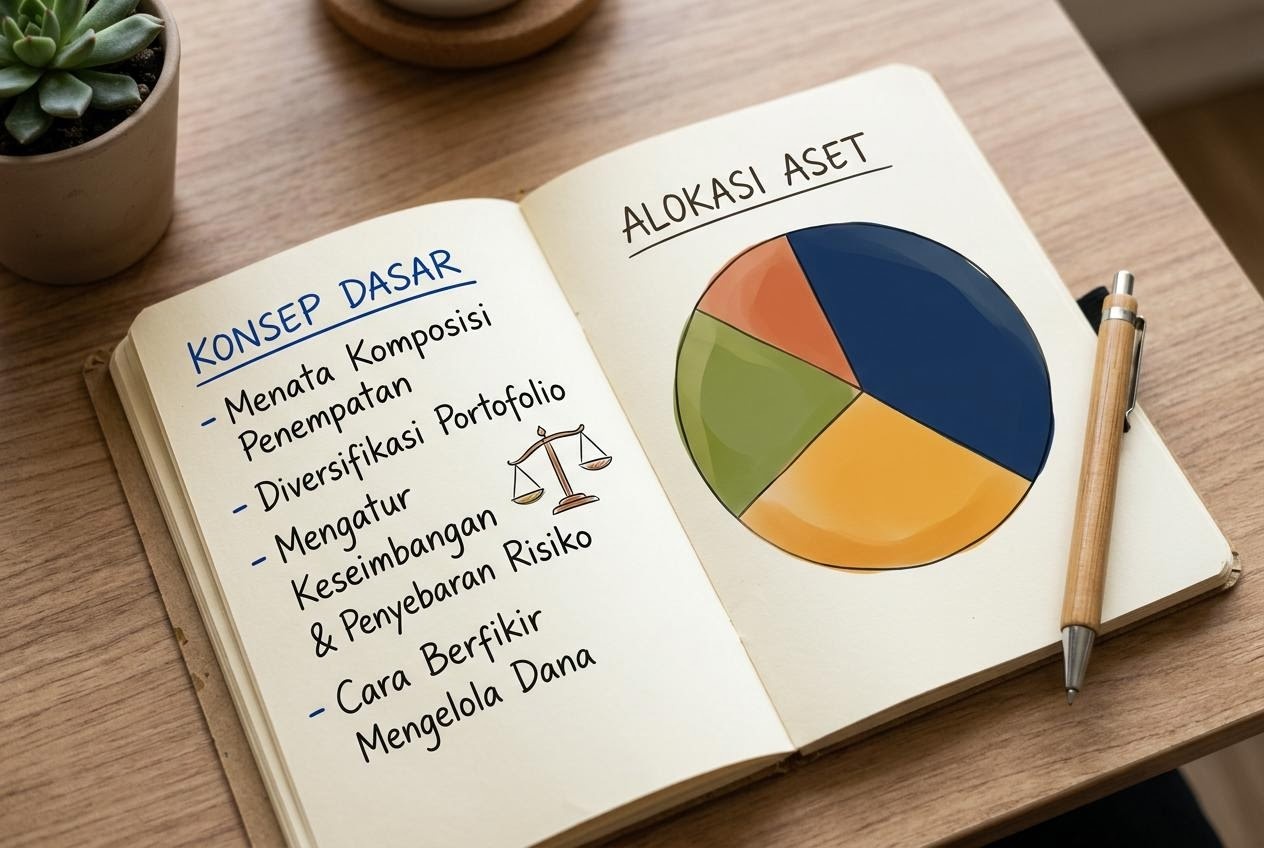 KONSEP DASAR
- Menata Komposisi
Penempatan
- Diversifikasi Portofolio
- Mengatur
Keseimbangan
& Penyebaran Risiko
- Cara Berfikir
Mengelola Dana
ALOKASI ASET